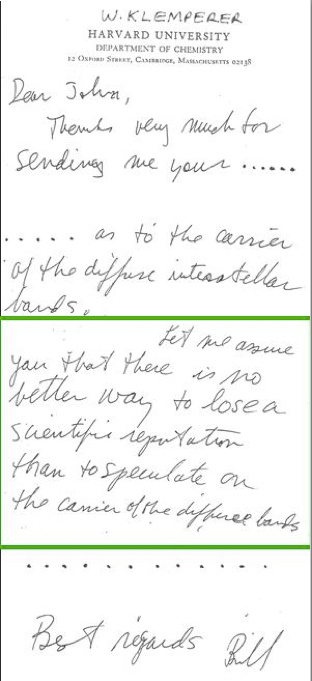 W. KLEMPERER
HARVARD UNIVERSITY
DEPARTMENT OF CHEMISTRY
12 OXFORD STREET, CAMBRIDGE, MASSACHUSETTS 02138
Dear John,
Thanks very much for
sending me your ......
..... as to the carrier
of the diffuse interstellar
bands.
Let me assure
you that there is no
better way to lose a
scientific reputation
than to speculate on
the carrier of the diffuse bands
............
Best regards Bill